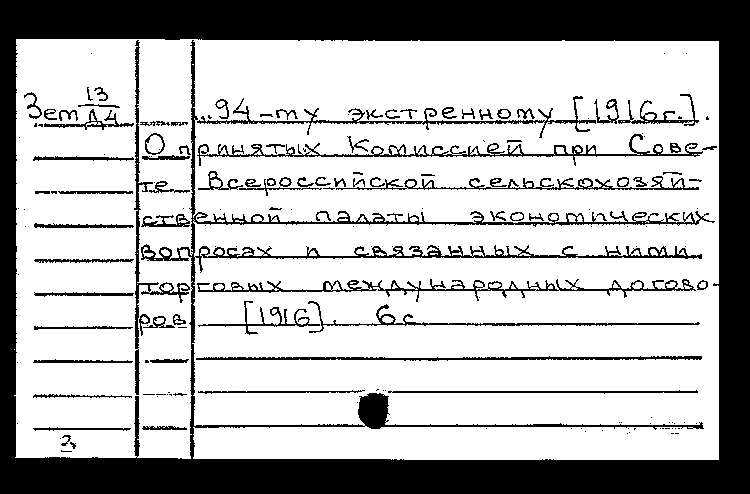 Зем 13/Д4 ...94-ту экстренному [1916г.].
О принятых Комиссией при Сове-
те Всероссийской сельскохозяй-
ственной палаты экономических
вопросах и связанных с ними
торговых международных догово-
ров [1916]. 6с
2